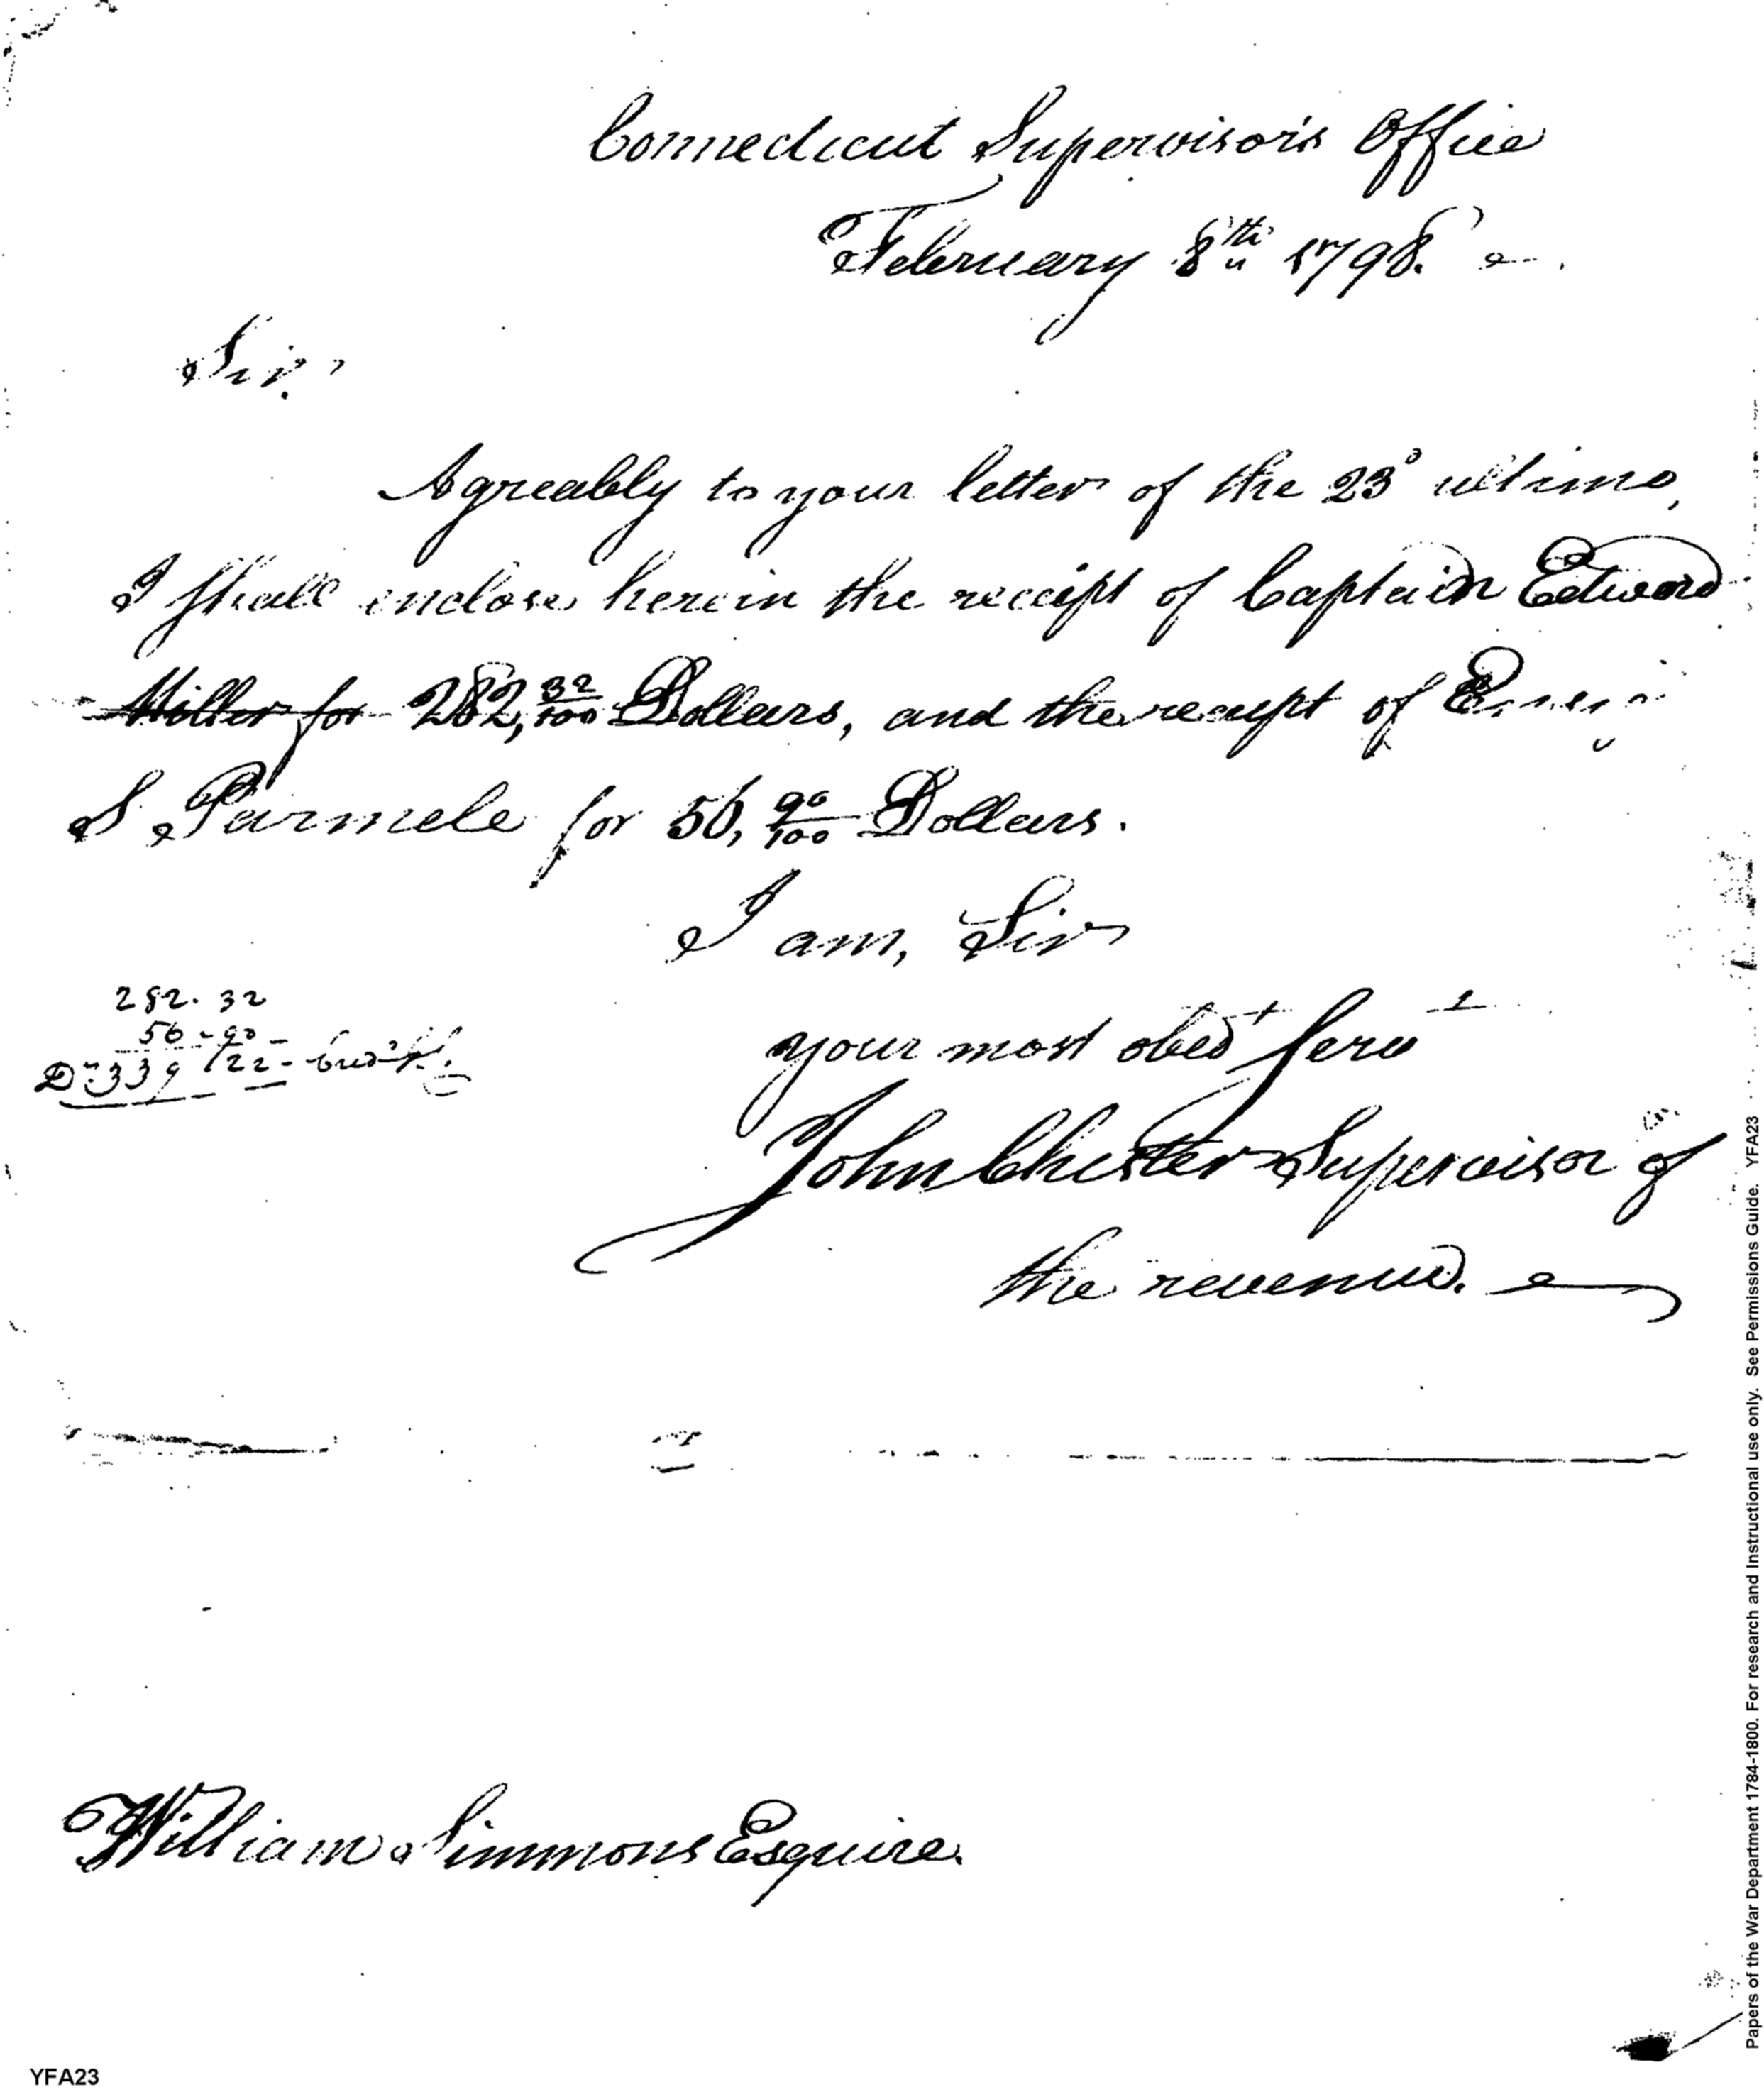 Connecticut Supervisor's Office
February 8th 1798.
Sir,
Agreably to your letter of the 23d ultimo,
I shall enclose herein the receipt of Captain Edward
Miller for 282,32/100 Dollars, and the receipt of
S Parmele for 56,90/100 Dollars.
I am, Sir
your most obedt servt
John Chester Supervisor of
the revenue.
282. 32
56-90
Drs 339 / 22 -
William Simmons Esquire.
YFA23
Papers of the War Department 1784-1800. For research and Instructional use only. See Permissions Guide. YFA23